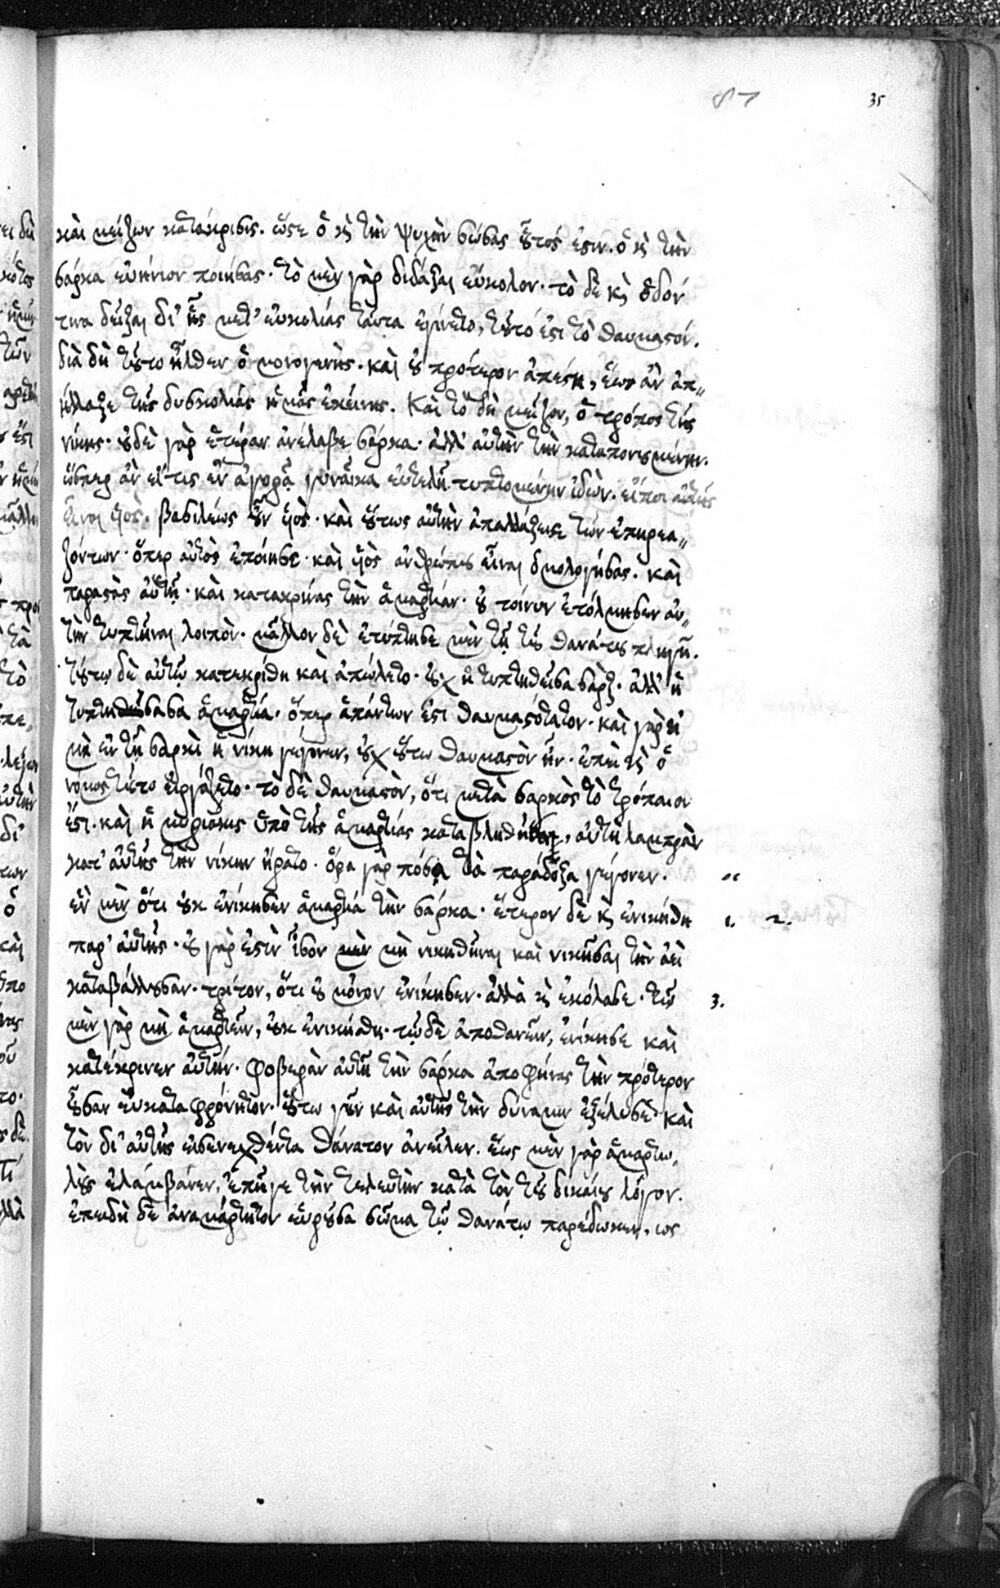 87 35
καὶ μείζων κατάκρισις. ὥστε ὁ κ τὴν ψυχὴν σώσας οὗτός ἐστιν. ὁ κ τὴν
σάρκα εὐήνιον ποιήσας. τὸ μὲν γὰρ διδάξαι εὔκολον. τὸ δὲ κ ὁδόν
τινα δεῖξαι δι' ἧς μετ' εὐκολίας ταῦτα ἐγίνετο, τοῦτό ἐστι τὸ θαυμαστόν.
διὰ δὴ τοῦτο ἦλθεν ὁ μονογενὴς. καὶ οὐ πρότερον ἀπέστη, ἕως ἂν ἀπ„
ήλλαξε τῆς δυσκολίας ἡμᾶς ἐκείνης. Καὶ τὸ δὴ μεῖζον, ὁ τρόπος τῆς
νίκης. οὐδὲ γὰρ ἑτέραν ἀνέλαβε σάρκα. ἀλλ' αὐτὴν τὴν καταπονουμένην.
ὥσπερ ἂν εἴ τις ἐν ἀγορᾷ γυναῖκα εὐτελῆ τυπτομένην ἰδὼν. εἴποι αὐτῆς
εἶναι υἱὸς. βασιλέως ὢν υἱὸς. καὶ οὕτως αὐτὴν ἀπαλλάξειε τῶν ἐπηρεα„
ζόντων. ὅπερ αὐτὸς ἐποίησε. καὶ υἱὸς ἀνθρώπου εἶναι ὁμολογήσας. καὶ
παραστὰς αὐτῇ. καὶ κατακρίνας τὴν ἁμαρτίαν. οὐ τοίνυν ἐτόλμησεν αυ„
τὴν τυπτῆσαι λοιπὸν. μᾶλλον δὲ ἐτύπτησε μὲν τῇ τοῦ θανάτου πληγῇ.
τούτῳ δὲ αὐτῷ κατεκρίθη καὶ ἀπώλετο. οὐχ ἡ τυπτηθεῖσα σὰρξ. ἀλλ' ἡ
τυπτήσασα ἁμαρτία. ὅπερ ἁπάντων ἐστὶ θαυμαστότατον. καὶ γὰρ εἰ
μὴ ἐν τῇ σαρκὶ ἡ νίκη γέγονεν, οὐχ οὕτω θαυμαστὸν ἦν. ἐπεὶ κ ὁ
νόμος τοῦτο εἰργάζετο. τὸ δὲ θαυμαστὸν, ὅτι μετὰ σαρκὸς τὸ τρόπαιον
ἔστι. καὶ ἡ μυριάκις ὑπὸ τῆς ἁμαρτίας καταβληθεῖσα, αὐτὴ λαμπρὰν
κατ' αὐτῆς τὴν νίκην ἤρατο. ὅρα γὰρ πόσα τὰ παράδοξα γέγονεν.
ἓν μὲν ὅτι οὐκ ἐνίκησεν ἁμαρτία τὴν σάρκα. ἕτερον δὲ κ ἐνικήθη 1. 2.
παρ' αὐτῆς. οὐ γάρ ἐστιν ἴσον μὲν μὴ νικηθῆναι καὶ νικῆσαι τὴν ἀεὶ
καταβάλλουσαν. τρίτον, ὅτι οὐ μόνον ἐνίκησεν. ἀλλὰ κ ἐκόλασε. τῷ 3.
μὲν γὰρ μὴ ἁμαρτεῖν, οὐκ ἐνικήθη. τῷ δὲ ἀποθανεῖν, ἐνίκησε καὶ
κατέκρινεν αὐτήν. φοβερὰν αὐτῇ τὴν σάρκα ἀποφήνας τὴν πρότερον
οὖσαν εὐκαταφρόνητον. οὕτω γοῦν καὶ αὐτῆς τὴν δύναμιν ἐξέλυσε. καὶ
τὸν δι' αὐτῆς εἰσενεχθέντα θάνατον ἀνεῖλεν. ἕως μὲν γὰρ ἁμαρτω„
λοὺς ἐλάμβανεν, ἐπῆγε τὴν τελευτὴν κατὰ τὸν τοῦ δικαίου λόγον.
ἐπειδὴ δὲ ἀναμάρτητον εὑροῦσα σῶμα τῷ θανάτῳ παρέδωκεν, ως